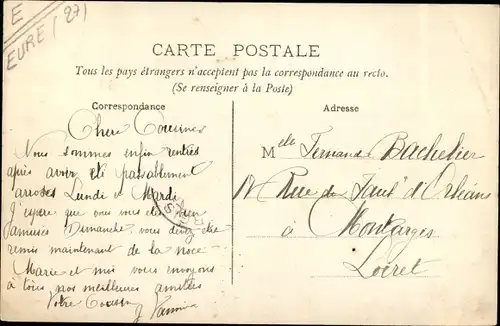 E
EURE (27)
CARTE POSTALE
Tous les pays étrangers n'acceptent pas la correspondance au recto.
(Se renseigner à la Poste)
Correspondance
Adresse
Nous sommes enfin rentrés
après avoir été passablement
arrosés Lundi et Mardi
J'espère que vous vous êtes bien
amusées Dimanche vous devez être
remis maintenant de la noce
Marie et moi vous envoyons
à tous nos meilleures amitiés
Votre Cousin
Melle Fernande Bachelier
Rue du Faubg d'Orléans
à Montargis
Loiret